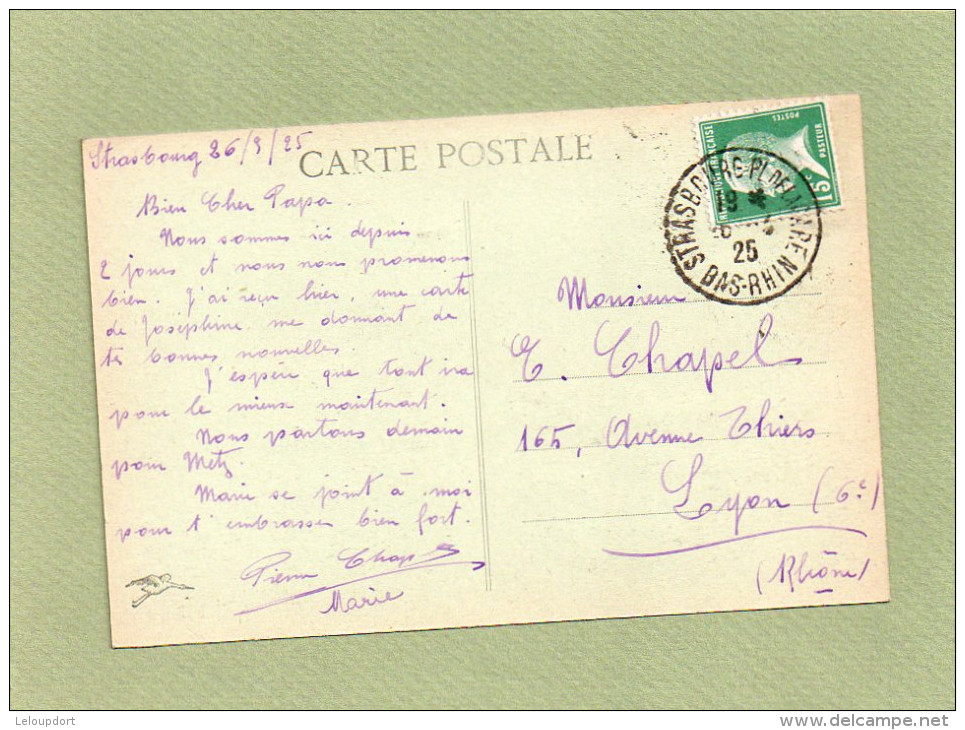 Strasbourg 26/3/25
CARTE POSTALE
Bien Cher Papa.
Nous sommes ici depuis
2 jours et nous nous promenons
bien. J'ai reçu hier, une carte
de Joséphine me donnant de
tes bonnes nouvelles.
J'espère que tout ira
pour le mieux maintenant.
Nous partons demain
pour Metz.
Marie se joint à moi
pour t'embrasser bien fort.
Pierre Chapel
Marie
REPUBLIQUE FRANÇAISE
POSTES
PASTEUR
15c
STRASBOURG-PL.DE LA GARE
19 *
25
BAS-RHIN
Monsieur
E. Chapel
165, Avenue Thiers
Lyon (6e)
(Rhône)
Leloupdort
www.delcampe.net